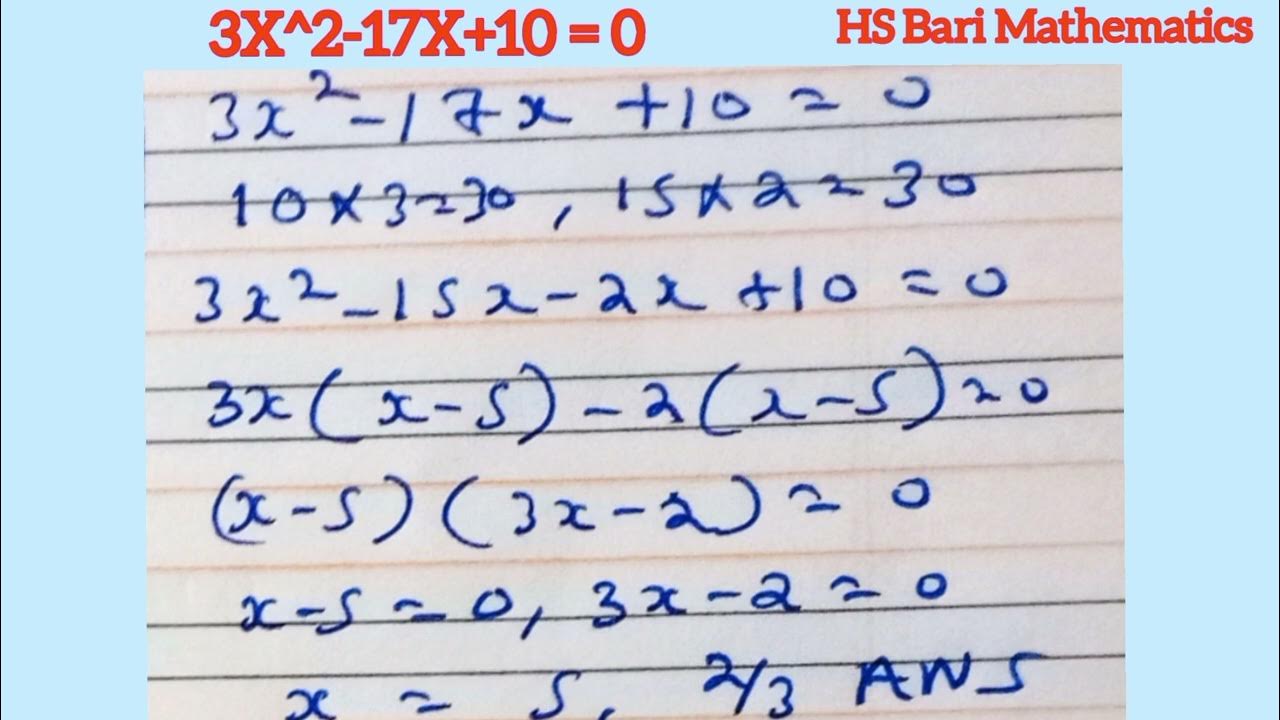 3X^2-17X+10 = 0
HS Bari Mathematics
3x² - 17x + 10 = 0
10 × 3 = 30, 15 × 2 = 30
3x² - 15x - 2x + 10 = 0
3x(x - 5) - 2(x - 5) = 0
(x - 5)(3x - 2) = 0
x - 5 = 0, 3x - 2 = 0
x = 5, 2/3 ANS